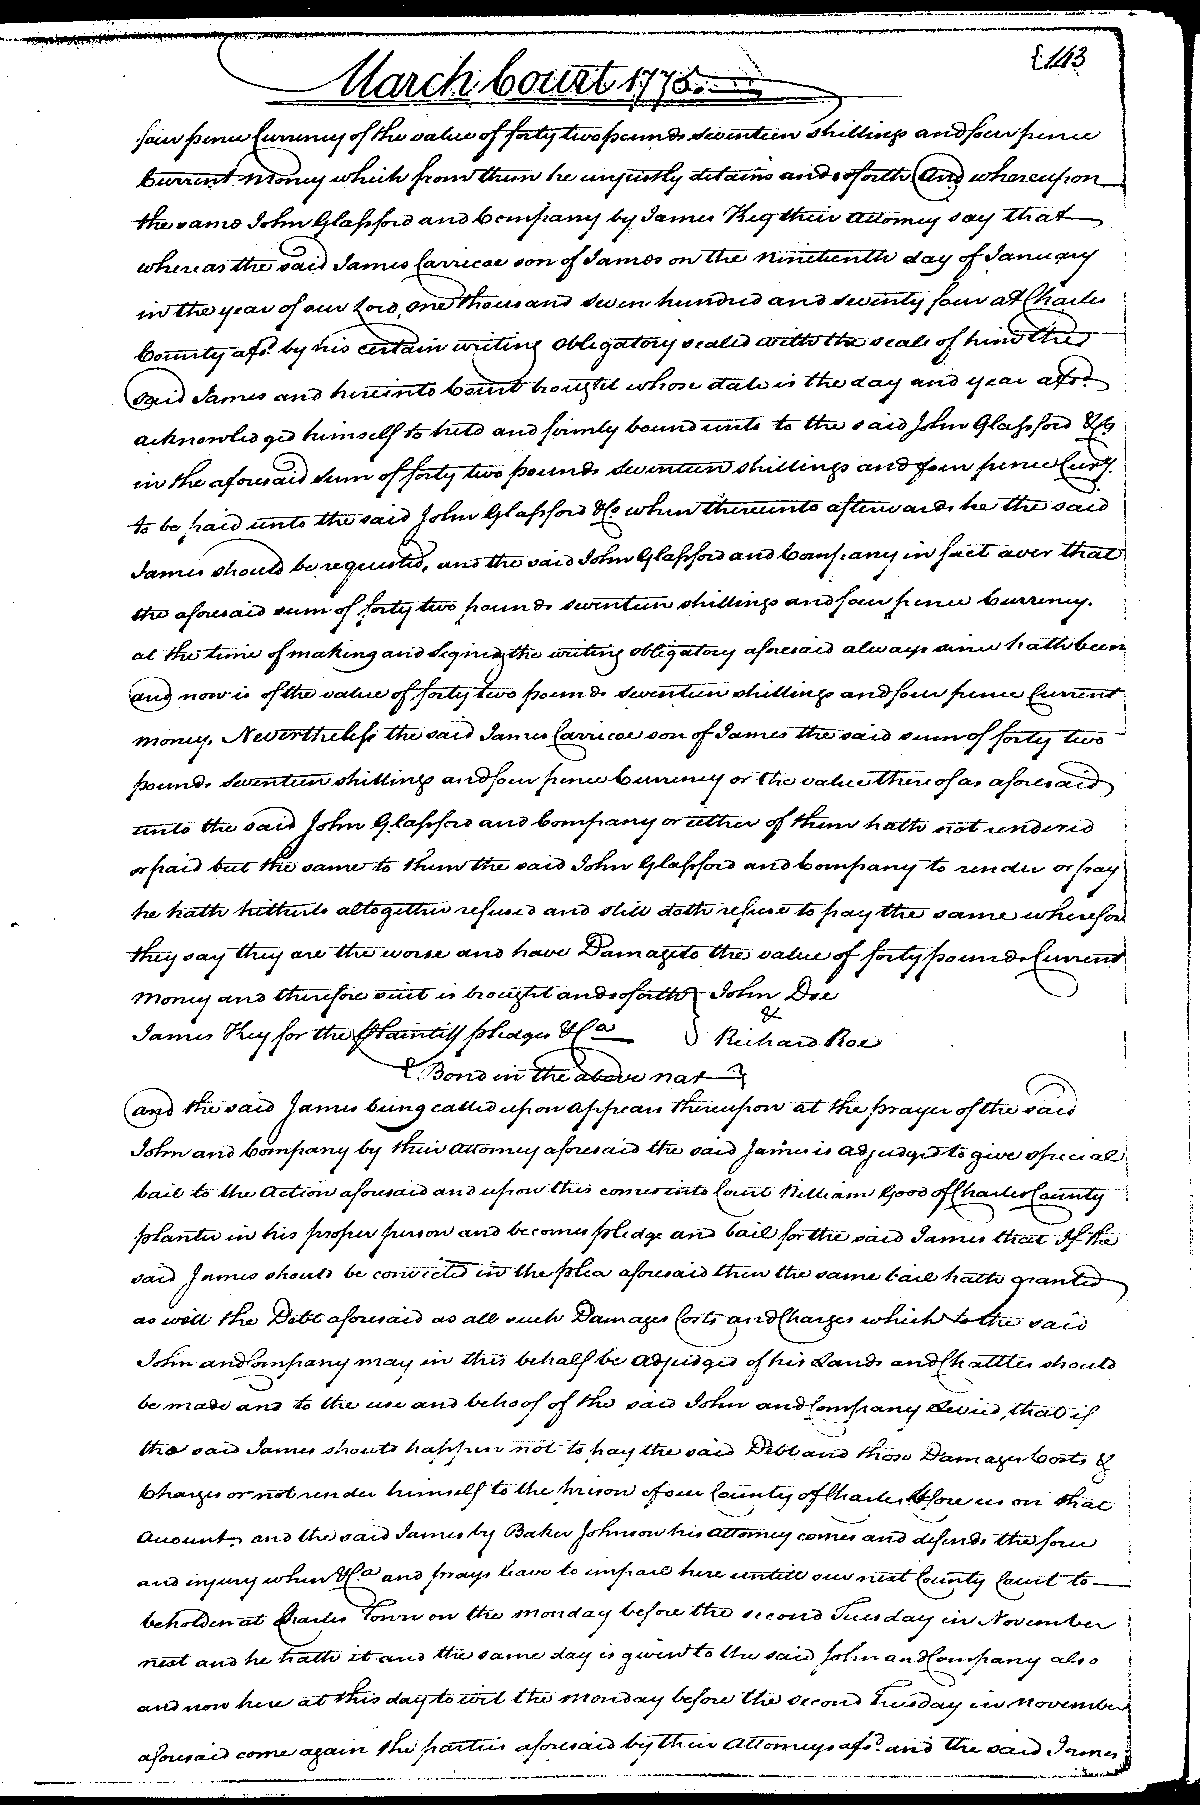 143
March Court 1775.
four pence Currency of the value of forty two pounds seventeen shillings and four pence
Current Money which from them he unjustly detains and soforth And whereupon
the same John Glassford and Company by James Key their Attorney say that
whereas the said James Carricoe son of James on the nineteenth day of January
in the year of our Lord one thousand seven hundred and seventy four at Charles
County afsd. by his certain writing obligatory sealed with the seale of him the
said James and here into Court brought whose date is the day and year afsd.
acknowledged himself to held and firmly bound unto to the said John Glassford &Co
in the aforesaid sum of forty two pounds seventeen shillings and four pence Curry.
to be paid unto the said John Glassford &Co when thereunto afterwards he the said
James should be requested, and the said John Glassford and Company in fact aver that
the aforesaid sum of forty two pounds seventeen shillings and four pence Currency.
at the time of making and signing the writing obligatory aforesaid always since hath been
and now is of the value of forty two pounds seventeen shillings and four pence Current
money, Nevertheless the said James Carricoe son of James the said sum of forty two
pounds seventeen shillings and four pence Currency or the value thereof as aforesaid
unto the said John Glassford and Company or either of them hath not rendered
or paid but the same to them the said John Glassford and Company to render or pay
he hath hitherto altogether refused and still doth refuse to pay the same wherefore
they say they are the worse and have Damage to the value of forty pounds Current
Money and therefore suit is brought and soforth } John Doe
&
James Key for the Plaintiff pledges &Ca } Richard Roe
{ Bond in the above nar }
and the said James being called upon appears thereupon at the prayer of the said
John and Company by their Attorney aforesaid the said James is adjudged to give special
bail to the Action aforesaid and upon this comes into Court William Good of Charles County
planter in his proper person and becomes pledge and bail for the said James that If the
said James should be convicted in the plea aforesaid then the same bail hath granted
as well the Debt aforesaid as all such Damages Costs and Charges which to the said
John and Company may in this behalf be adjudged of his Lands and Chattles should
be made and to the use and behoof of the said John and Company Levied, that if
the said James should happen not to pay the said Debt and those Damages Costs &
Charges or not render himself to the prison of our County of Charles before us on that
Account, and the said James by Baker Johnson his Attorney comes and defends the force
and injury when &Ca and prays leave to imparle here untill our next County Court to
beholden at Charles Town on the Monday before the second Tuesday in November
next and he hath it and the same day is given to the said John and Company also
and now here at this day to wit the Monday before the second Tuesday in November
aforesaid come again the parties aforesaid by their Attorneys afsd. and the said James